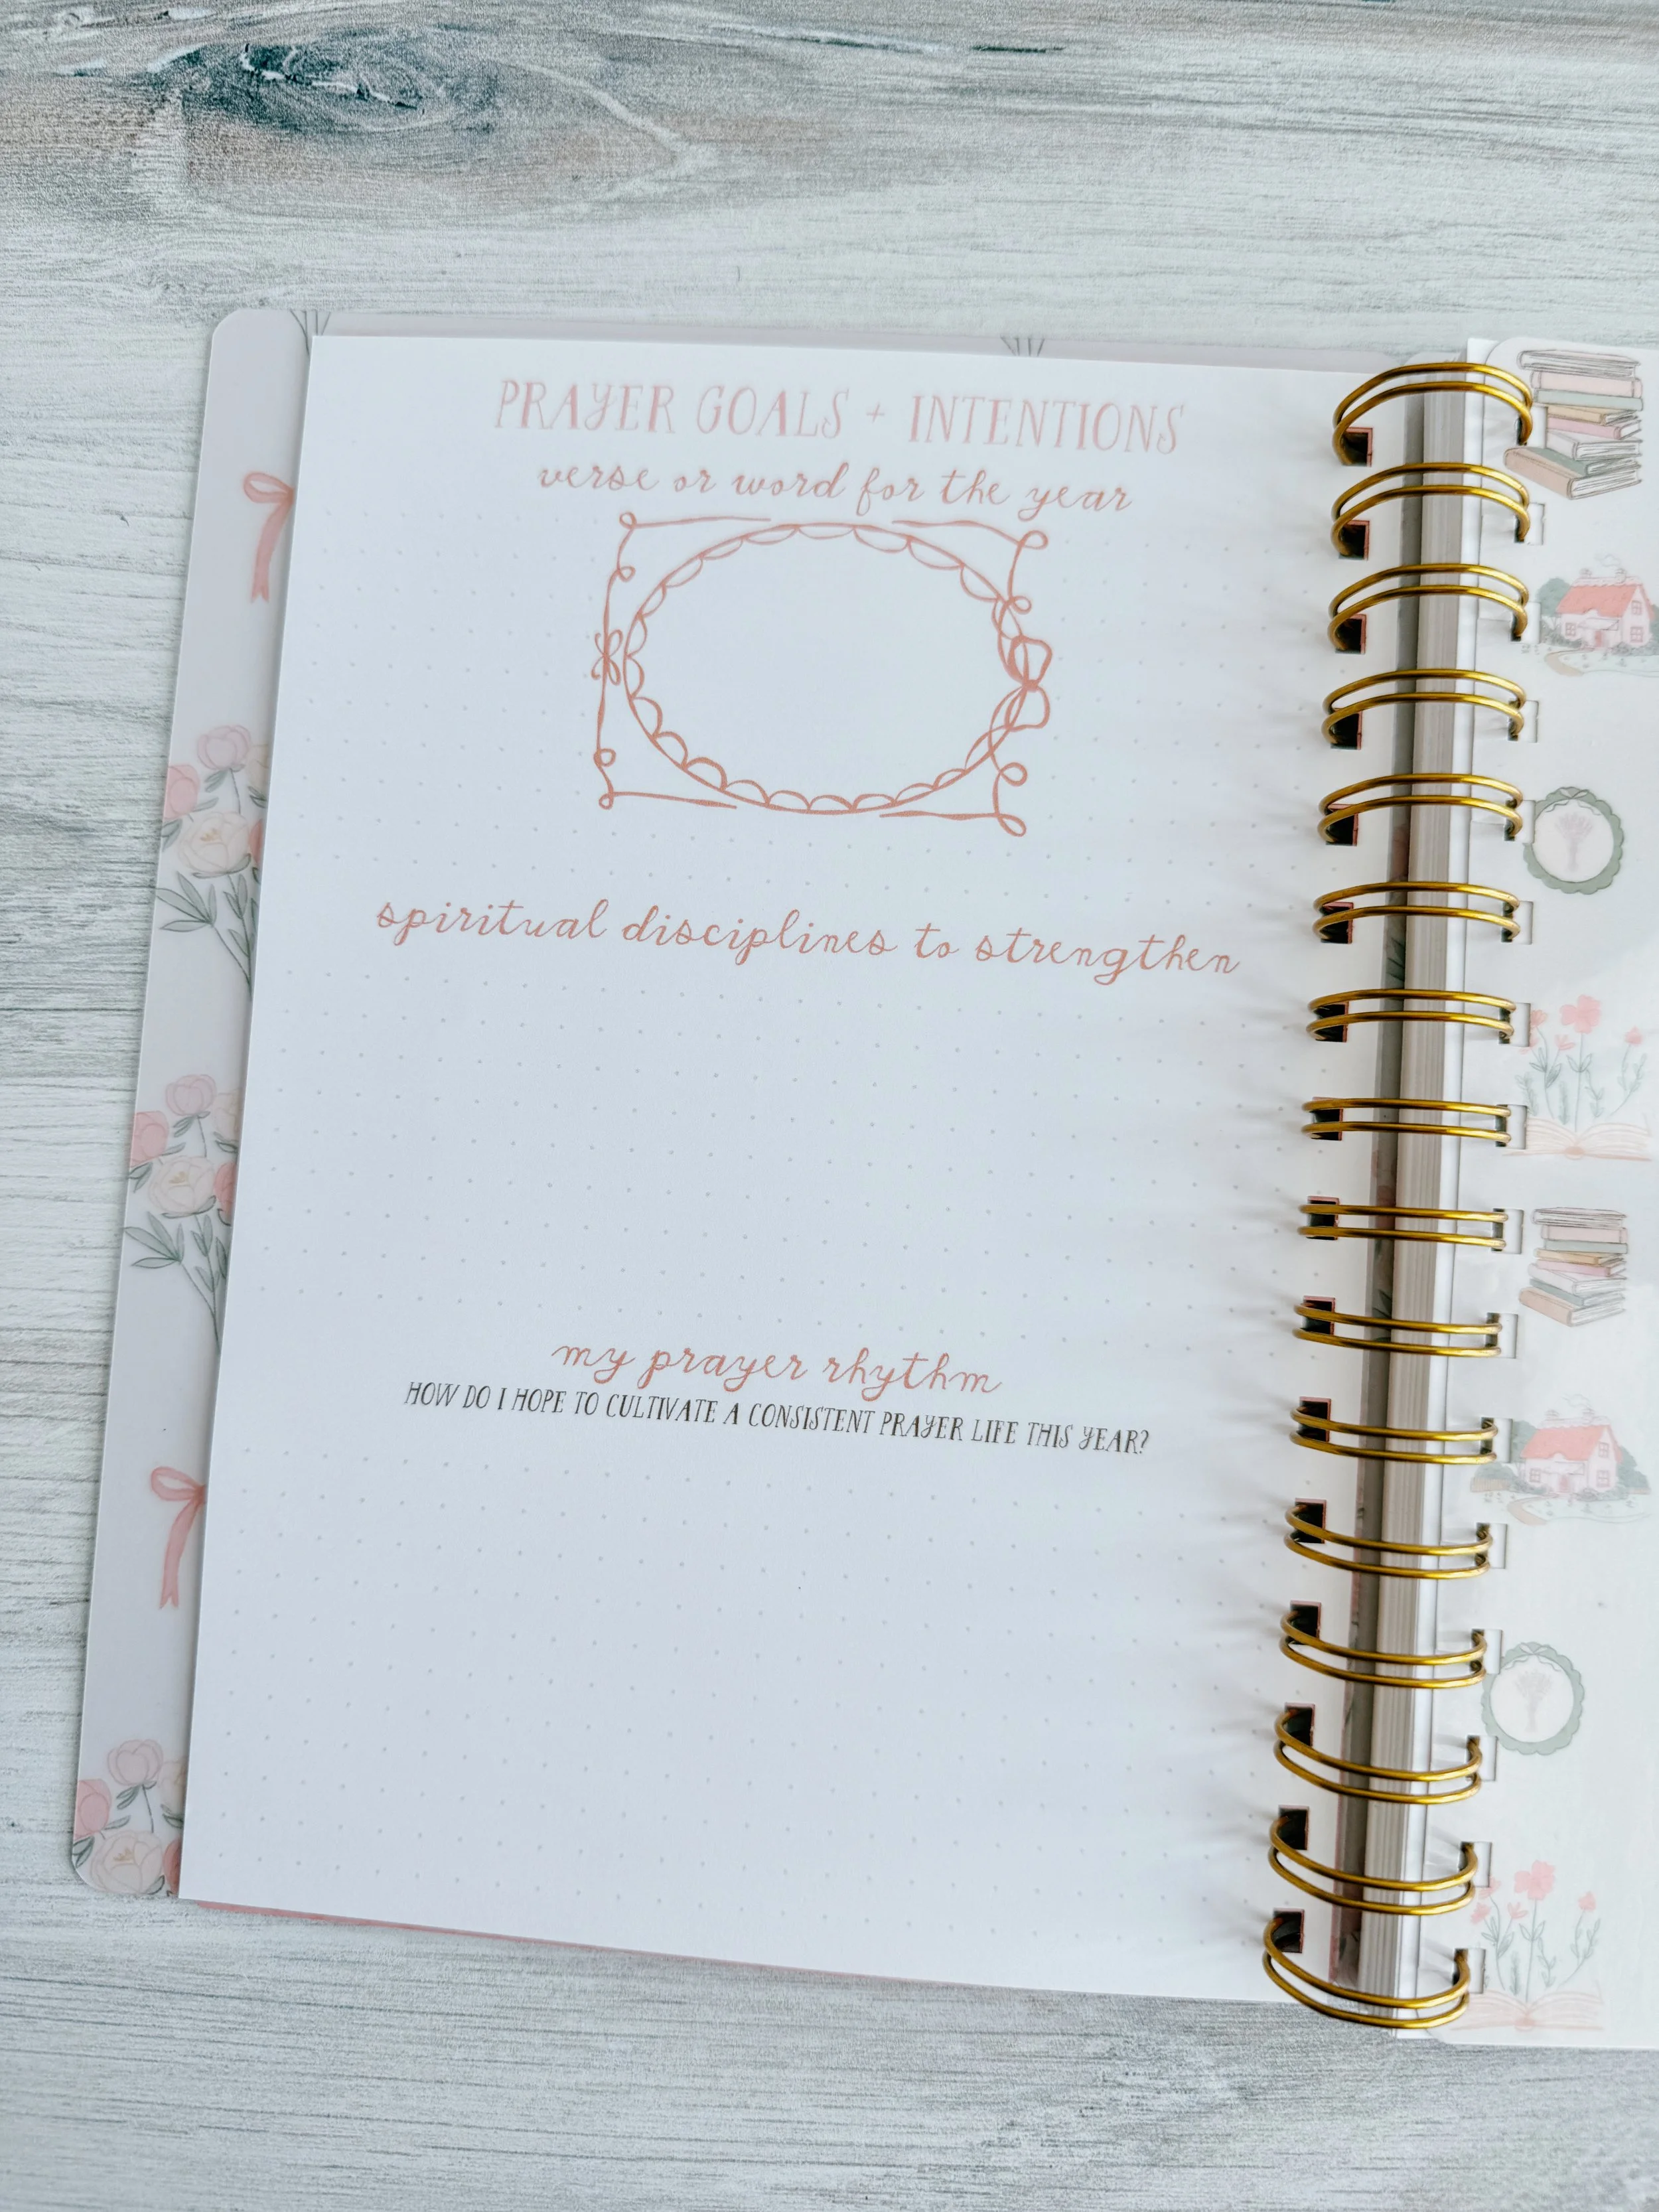 PRAYER GOALS + INTENTIONS
verse or word for the year
spiritual disciplines to strengthen
my prayer rhythm
HOW DO I HOPE TO CULTIVATE A CONSISTENT PRAYER LIFE THIS YEAR?